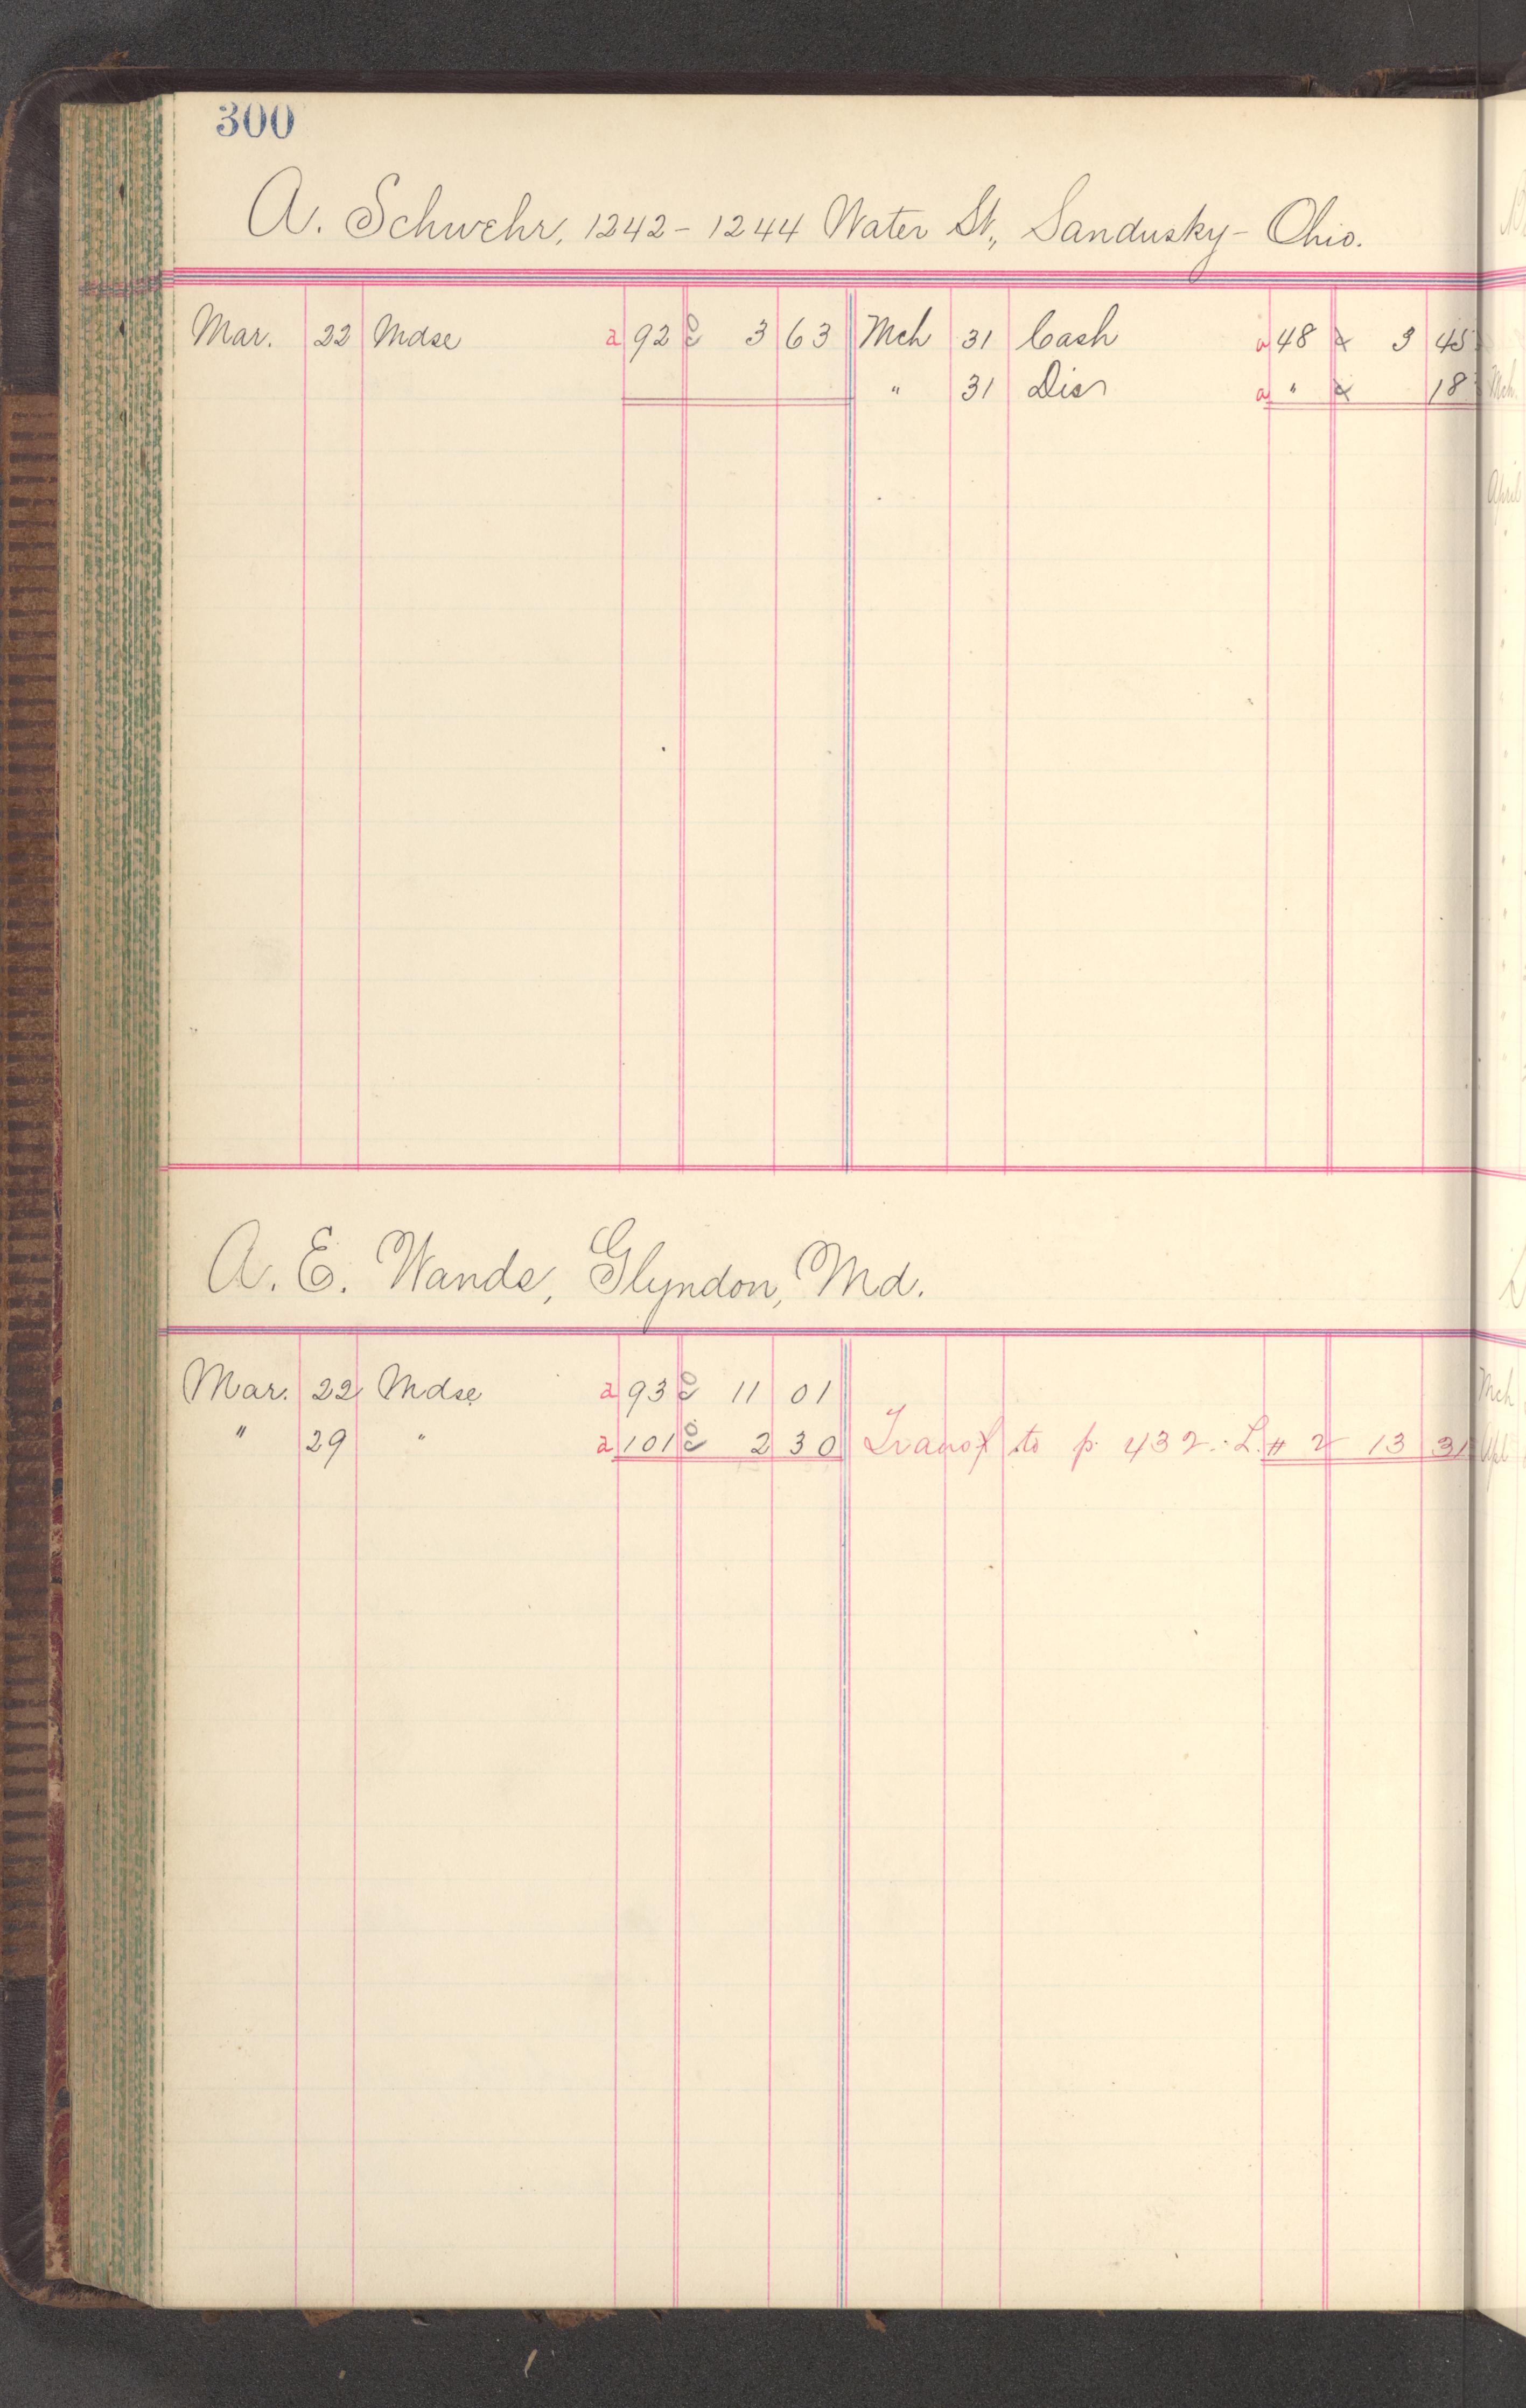 300
A. Schwehr, 1242-1244 Water St., Sandusky- Ohio.
Mar. 22 Mdse a 92 3 63 Mch 31 Cash a 48 3 45
" 31 Dis a " 18
A. E. Wande, Glyndon, Md.
Mar. 22 Mdse a 93 11 01
" 29 " a 101 2 30 Transf to p. 432. L. # 2 13 31
Mch
April
Mch
Apl